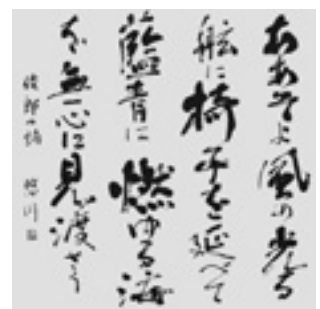 ああそよ風の歩みる
舷に椅子を延べて
藍青に燃ゆる海
を無心に見渡せう